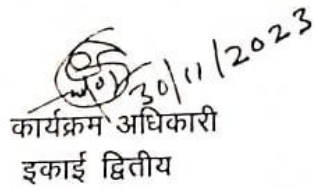 30/11/2023
कार्यक्रम अधिकारी
इकाई द्वितीय